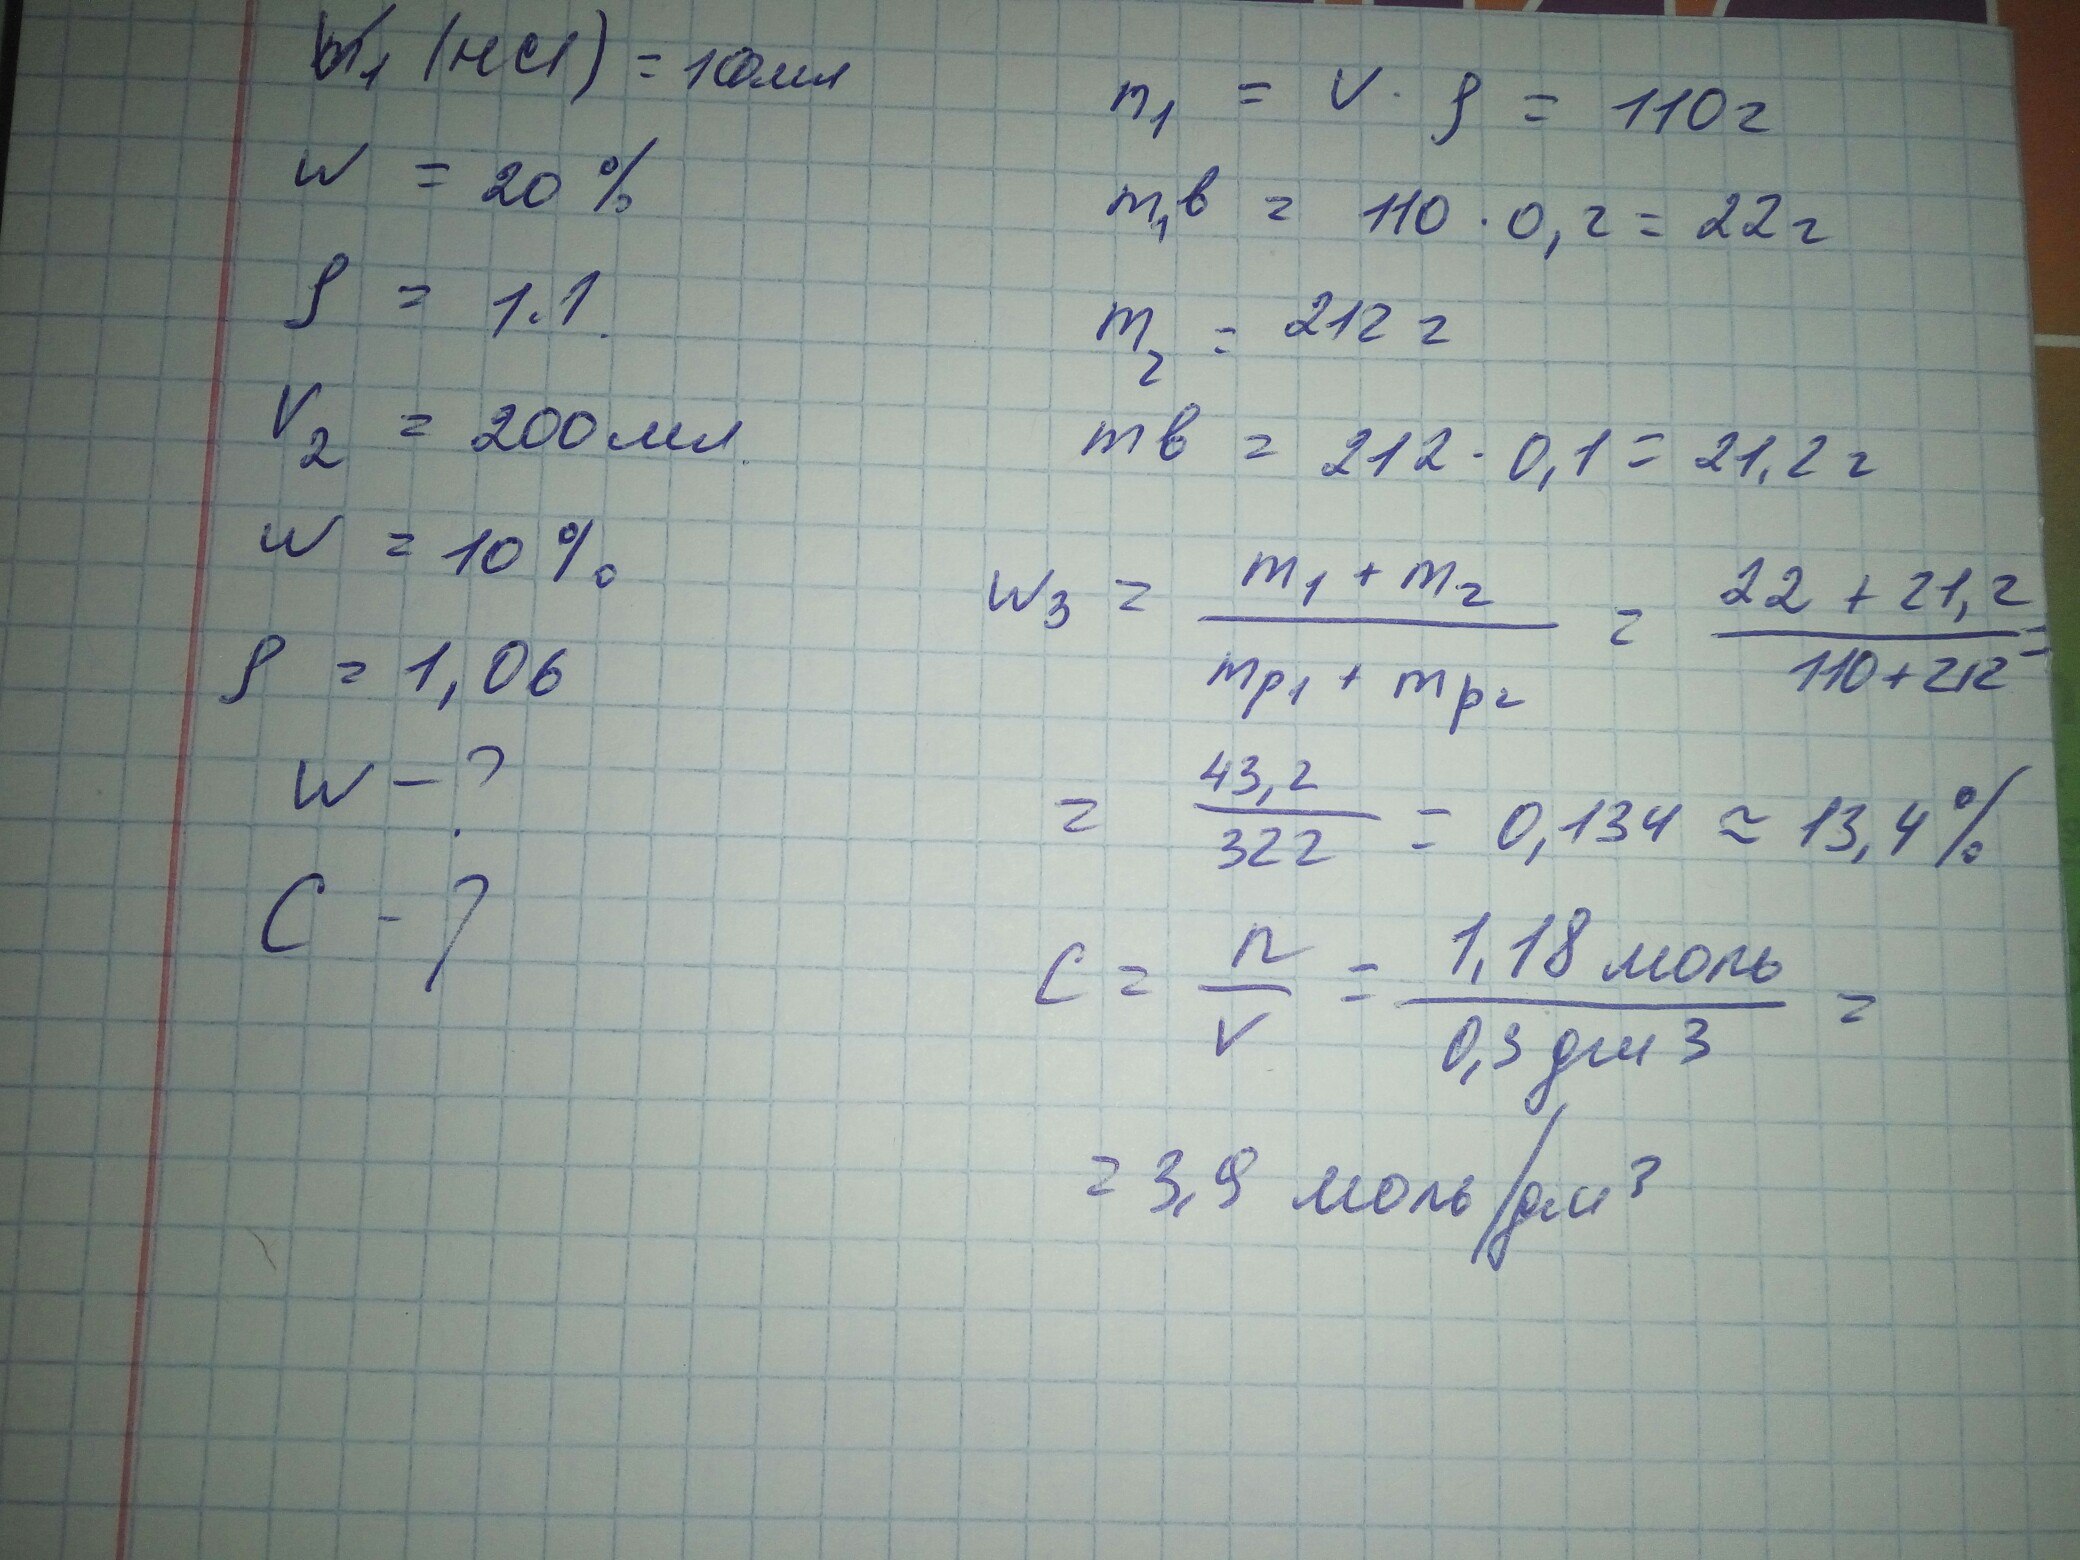 V₁ (HCl) = 100мл
w = 20 %
ρ = 1.1.
V₂ = 200мл.
w = 10 %
ρ = 1,06
w – ?
C – ?
m₁ = V · ρ = 110г
m₁в = 110 · 0,2 = 22г
m₂ = 212 г
mв = 212 · 0,1 = 21,2г
w₃ = (m₁ + m₂) / (mр₁ + mр₂) = (22 + 21,2) / (110 + 212) =
= 43,2 / 322 = 0,134 ≈ 13,4 %
C = n / V = 1,18 моль / 0,3 дм3 =
= 3,9 моль/дм³